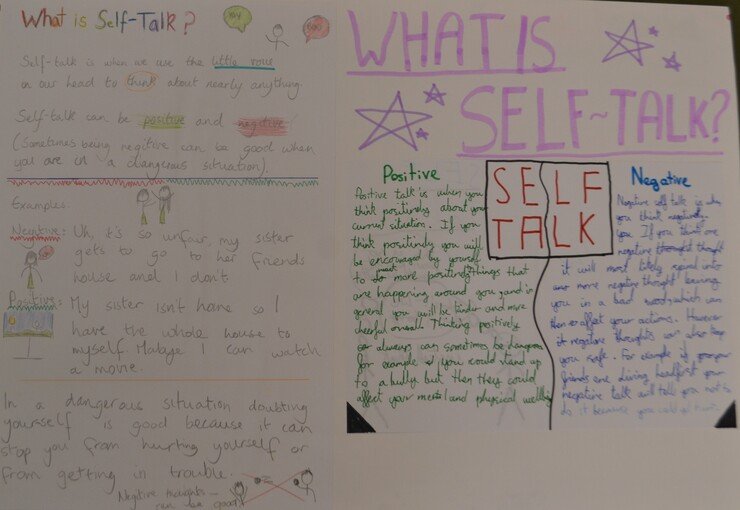 What is Self-Talk?
my
Self-talk is when we use the little voice
in our head to think about nearly anything.
Self-talk can be positive and negitive!
(Sometimes being negitive can be good when
you are in a dangerous situation).
Examples:
Negitive: Uh, it's so unfair, my sister
gets to go to her friends
house and I don't
Positive: My sister isn't home so I
have the whole house to
myself. I can watch
a movie.
In a dangerous situation doubting
yourself is good because it can
stop you from hurting yourself or
from getting in trouble.
Negitive thoughts
can be good
WHAT IS
SELF~TALK?
Positive
Positive talk is when you
think positively about your
current situation. If you
think positively you will
be encouraged by yourself
to do more positive things that
are happening around you and in
general you will be kinder and more
cheerful overall. Thinking positively
always can sometimes be dangerous
for example if you would stand up
to a bully but then they could
affect your mental and physical wellbeing
SELF
TALK
Negative
Negative self talk is when
you think negatively
you. If you think one
negative thought
it will most likely spiral into
more negative thought leaving
you in a bad mood which can
then affect your actions. However
negative thoughts can also keep
you safe. For example if your
friends are diving headfirst your
negative talk will tell you not to
do it because you could